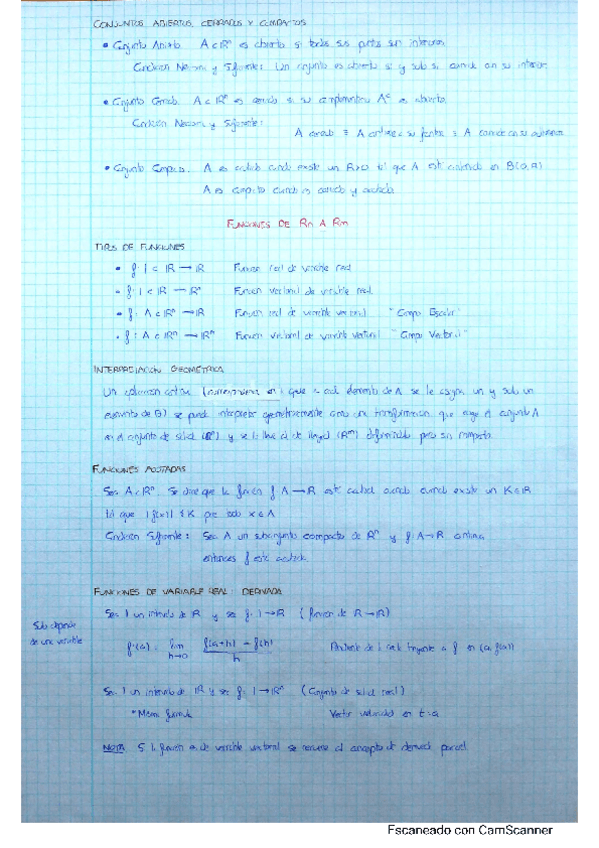 CONJUNTOS ABIERTOS, CERRADOS Y COMPACTOS
• Conjunto Abierto. A⊂Rⁿ es abierto si todos sus puntos son interiores.
Condición Necesaria y Suficiente: Un conjunto es abierto si y solo si coincide con su interior.
• Conjunto Cerrado. A⊂Rⁿ es cerrado si su complementario Aᶜ es abierto.
Condición Necesaria y Suficiente:
A cerrado ≡ A contiene a su frontera ≡ A coincide con su adherencia
• Conjunto Compacto. A es acotado cuando existe un R>0 tal que A está contenido en B(0,R)
A es compacto cuando es cerrado y acotado.
FUNCIONES DE Rn A Rm
TIPOS DE FUNCIONES
• f: I ⊂ R → R Función real de variable real
• f: I ⊂ R → Rⁿ Función vectorial de variable real
• f: A ⊂ Rⁿ → R Función real de variable vectorial "Campo Escalar"
• f: A ⊂ Rⁿ → Rᵐ Función vectorial de variable vectorial "Campo Vectorial"
INTERPRETACIÓN GEOMÉTRICA
Un (correspondencia en la que a cada elemento de A se le asigna un y solo un
elemento de B) se puede interpretar geométricamente como una transformación que coge el conjunto A
en el conjunto de salida (Rⁿ) y se lo lleva al de llegada (Rᵐ) deformándolo pero sin romperlo.
FUNCIONES ACOTADAS
Sea A⊂Rⁿ. Se dice que la función f: A→R está acotada cuando cuando existe un K∈R
tal que |f(x)| ≤ K para todo x∈A
Condición Suficiente: Sea A un subconjunto compacto de Rⁿ y f: A→R continua,
entonces f está acotada.
FUNCIONES DE VARIABLE REAL. DERIVADA
Solo depende
de una variable
Sea I un intervalo de R y sea f: I→R (función de R→R)
f'(a) = lim h→0 f(a+h) - f(h) / h Pendiente de la recta tangente a f en (a, f(a))
Sea I un intervalo de R y sea f: I→Rⁿ (Conjunto de salida real)
*Misma fórmula Vector velocidad en t=a
NOTA: Si la función es de variable vectorial se recurre al concepto de derivada parcial
Escaneado con CamScanner